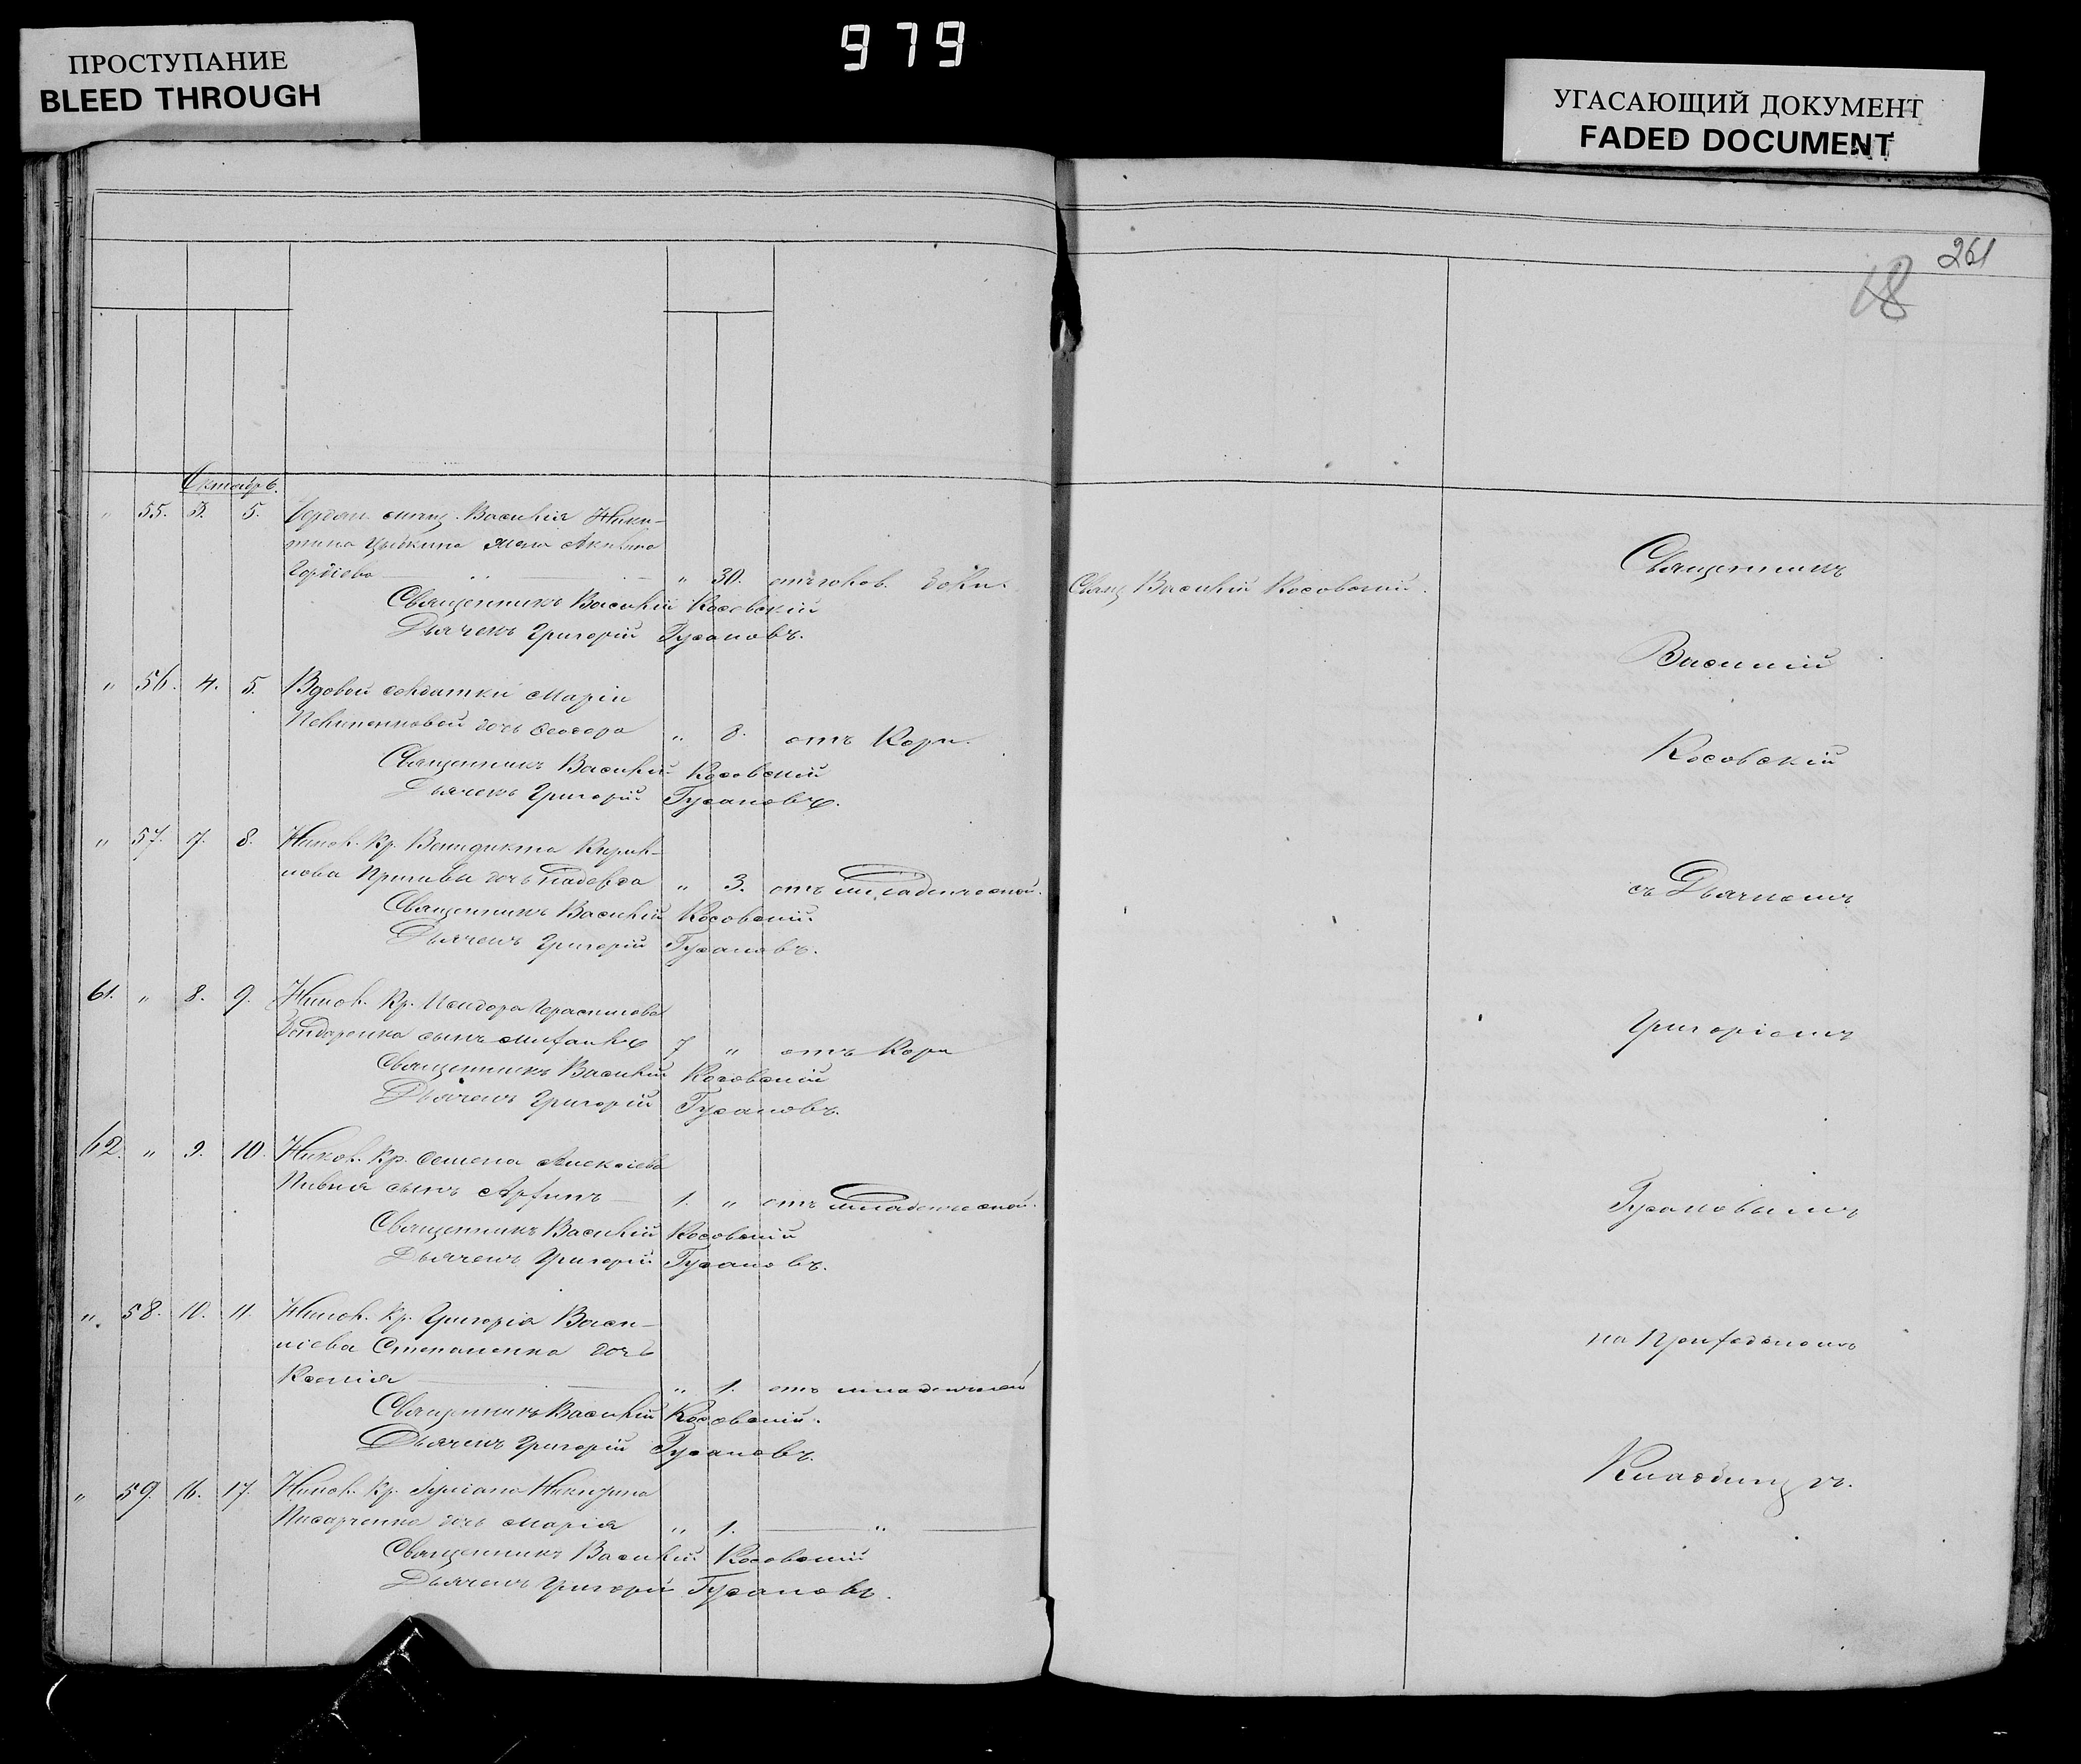 ПРОСТУПАНИЕ
BLEED THROUGH
979
УГАСАЮЩИЙ ДОКУМЕНТ
FADED DOCUMENT
261
18
Октябрь.
" 55. 3. 5. Василія Ники-
тина жена Акилина
Гордіева " 30. Свящ Василій Косовскій.
Священникъ Василій Косовскій
Дьячекъ Григорій Гусановъ.
" 56. 4. 5. Вдовой солдатки Маріи
дочь Ѳеодора " 8. отъ Кори.
Священникъ Василій Косовскій
Дьячекъ Григорій Гусановъ.
" 57. 7. 8. Никол. Кр. Венидикта Кирил-
лова дочь " 3. отъ младенческой.
Священникъ Василій Косовскій
Дьячекъ Григорій Гусановъ.
61. " 8. 9. Никол. Кр. Исидора Герасимова
Бондаренка сынъ Михаилъ 7 " отъ Кори
Священникъ Василій Косовскій
Дьячекъ Григорій Гусановъ.
62. " 9. 10. Никол. Кр. Семена Алексіева
Пивня сынъ 1. " отъ младенческой.
Священникъ Василій Косовскій
Дьячекъ Григорій Гусановъ.
" 58. 10. 11. Никол. Кр. Григорія Васи-
ліева Степаненка дочь
Ксенія " 1. отъ младенческой
Священникъ Василій Косовскій.
Дьячекъ Григорій Гусановъ.
" 59. 16. 17. Никол. Кр.
Писарченка дочь Марія " 1. "
Священникъ Василій Косовскій
Дьячекъ Григорій Гусановъ.
Священникъ
Василій
Косовскій
съ Дьячкомъ
Григоріемъ
Гусановымъ
на Приходскомъ
Кладбищѣ.